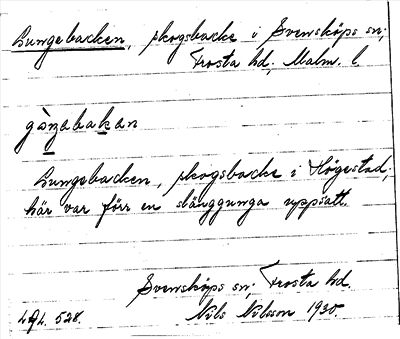 Gungebacken, skogsbacke i Svensköps sn;
Frosta hd; Malm. l
gòŋabakan
Gungebacken, skogsbacke i Högestad;
här var förr en slänggunga uppsatt.
Svensköps sn; Frosta hd.
LAL. 528. Nils Nilsson 1930.